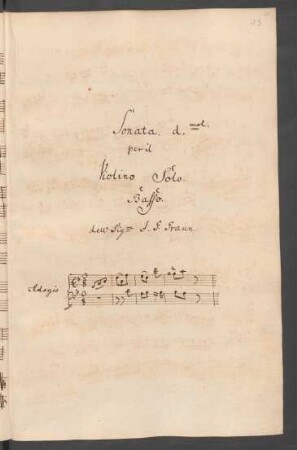 13
Sonata. d. mol.
per il
Violino Solo.
è Basso.
dell Sigr. J. G. Graun.
Adagio